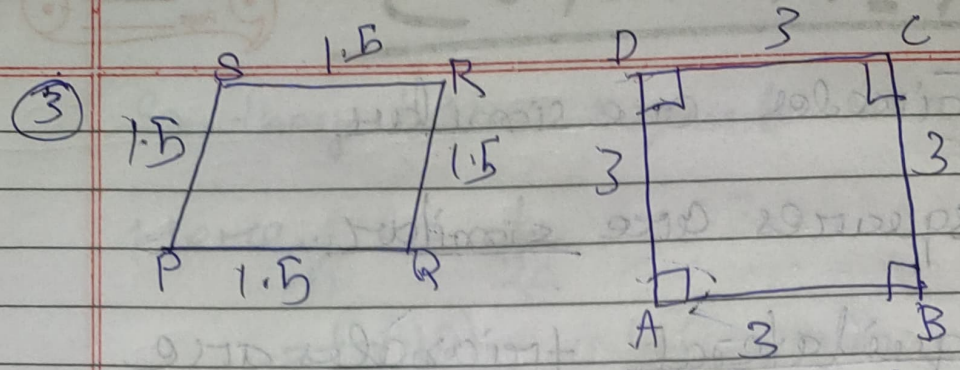 3
S 1.5 R
1.5
1.5
P 1.5 Q
D 3 C
3
3
A 3 B